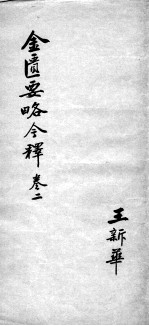 金匱要略今釋卷二
王新華